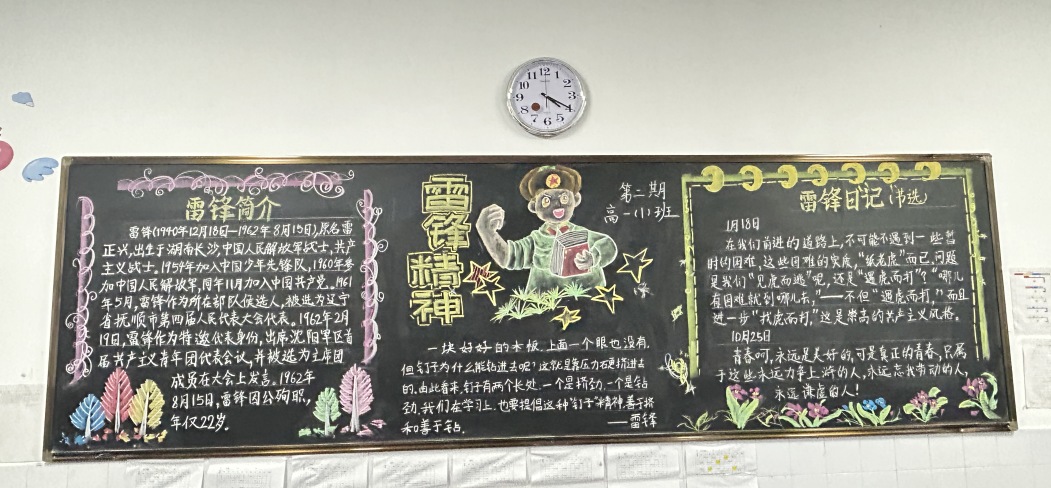 雷锋简介
雷锋(1940年12月18日—1962年8月15日),原名雷
正兴,出生于湖南长沙,中国人民解放军战士,共产
主义战士,1954年加入中国少年先锋队,1960年参
加中国人民解放军,同年11月加入中国共产党。1961
年5月,雷锋作为所在部队候选人,被选为辽宁
省抚顺市第四届人民代表大会代表。1962年2月
19日,雷锋作为特邀代表身份,出席沈阳军区首
届共产主义青年团代表会议,并被选为主席团
成员在大会上发言。1962年
8月15日,雷锋因公殉职,
年仅22岁。
雷锋精神
第二期
高一(1)班
一块好好的木板,上面一个眼也没有,
但钉子为什么能钻进去呢?这就是靠压力硬挤进去
的,由此看来,钉子有两个长处,一个是挤劲,一个是钻
劲,我们在学习上,也要提倡这种"钉子"精神,善于挤
和善于钻。
——雷锋
雷锋日记(节选)
1月18日
在我们前进的道路上,不可能不遇到一些暂
时的困难,这些困难的实质,"纸老虎"而已,问题
是我们"见虎而逃"呢,还是"遇虎而打"?"哪儿
有困难就到哪儿去,"——不但"遇虎而打,"而且
进一步"找虎而打,"这是崇高的共产主义风格。
10月25日
青春呵,永远是美好的,可是真正的青春,只属
于这些永远力争上游的人,永远忘我劳动的人,
永远谦虚的人!
12
1
2
3
4
5
6
7
8
9
10
11